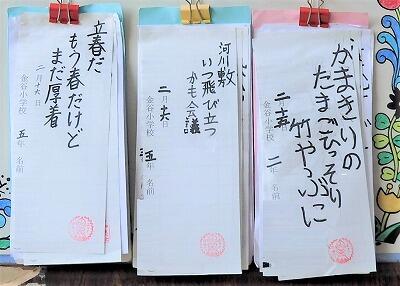 かまきりの
たまごひっそり
竹やぶに
金谷小学校 二年 名前
河川敷
いつ飛び立つ
かも会議
二月十六日
金谷小学校 五年 名前
立春だ
もう春だけど
まだ厚着
二月十六日
金谷小学校 五年 名前